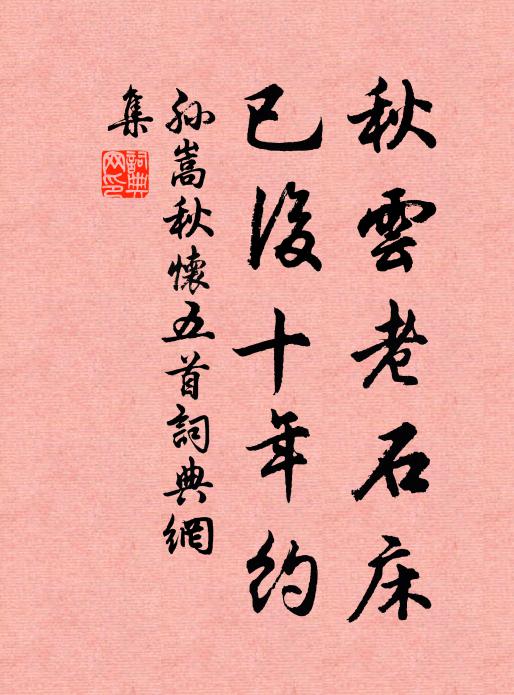 秋雲老石床
已後十年約
孙嵩秋懷五首詞典網
集
詞典
网印